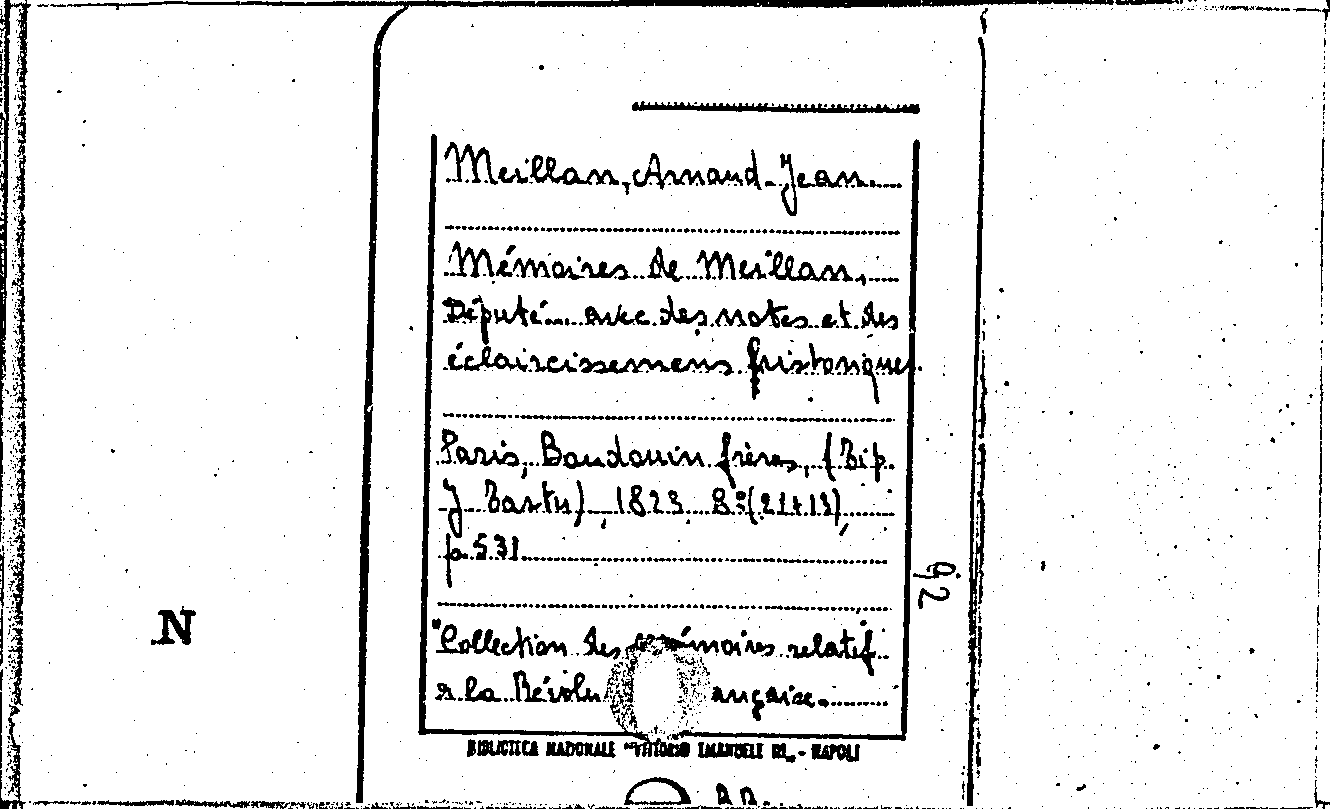 Meillan, Arnaud-Jean.
Mémoires de Meillan,
Député... avec des notes et des
éclaircissemens historiques.
Paris, Baudouin frères, (Tip.
J. Tastu), 1823. 8º (21x13),
p. 531
92
N
"Collection des mémoires relatif.
a la Révolu ançaise.
BIBLIOTECA NAZIONALE "VITTORIO EMANUELE III„ - NAPOLI